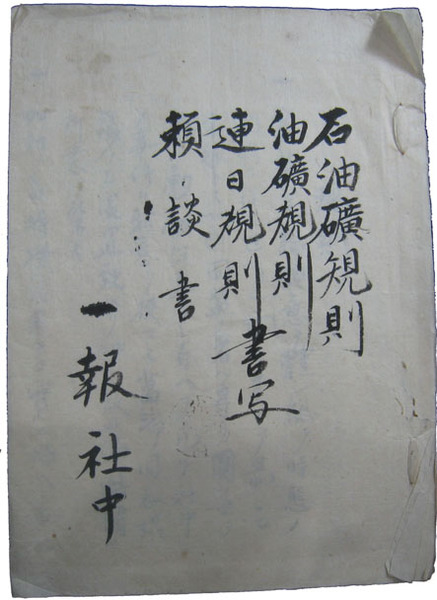 石油礦規則
油礦規則
連日規則書写
頼談書
一報社中